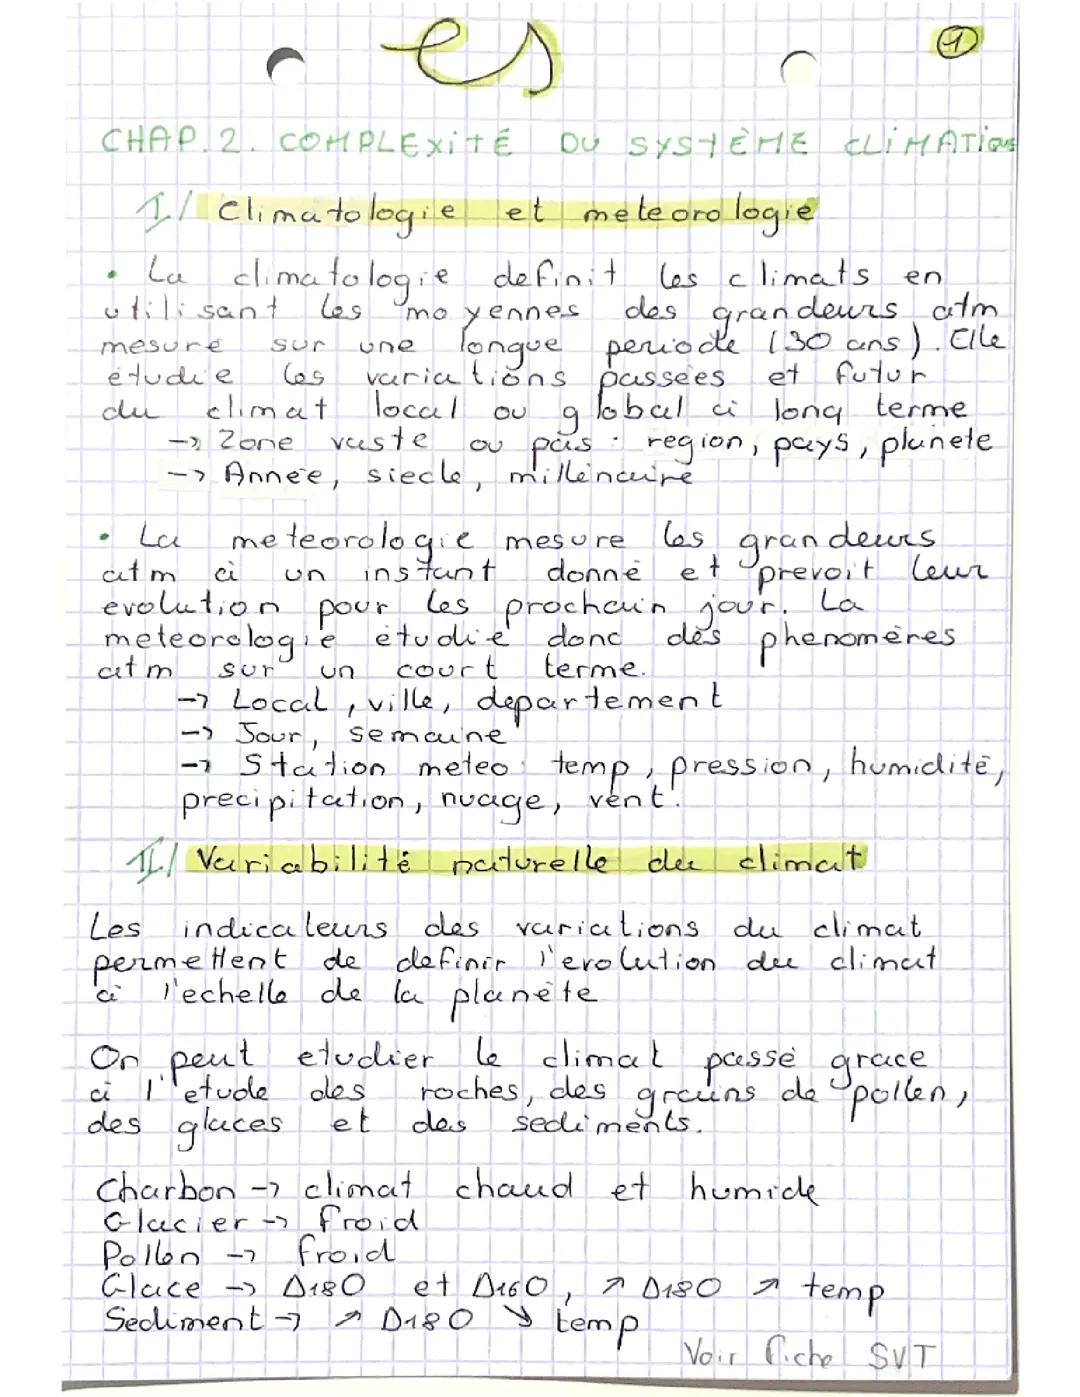 es
1
CHAP. 2. COMPLEXITÉ DU SYSTÈME CLIMATIQUE
I/ Climatologie et meteorologie
• La climatologie definit les climats en
utilisant les moyennes des grandeurs atm
mesure sur une longue periode (30 ans). Elle
étudie les variations passées et futur
du climat local ou global à long terme
-> Zone vaste ou pas : region, pays, planete
-> Année, siecle, millénaire
• La meteorologie mesure les grandeurs
atm à un instant donné et prevoit leur
evolution pour les prochain jour. La
meteorologie étudie donc des phenomères
atm sur un court terme.
-> Local, ville, departement
-> Jour, semaine
-> Station meteo : temp, pression, humidité,
precipitation, nuage, vent.
II/ Variabilité naturelle du climat
Les indicateurs des variations du climat
permettent de definir l'evolution du climat
à l'echelle de la planète
On peut etudier le climat passé grace
à l'etude des roches, des grains de pollen,
des glaces et des sediments.
Charbon -> climat chaud et humide
Glacier -> froid
Pollen -> froid
Glace -> Δ18O et Δ16O, ↗ Δ18O ↗ temp
Sediment -> ↗ Δ18O ↘ temp
Voir fiche SVT